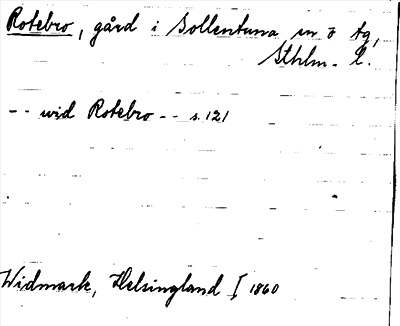 Rotebro, gård i Sollentuna sn o tg,
Sthlm. L.
-- wid Rotebro -- s. 121
Widmark, Helsingland I 1860